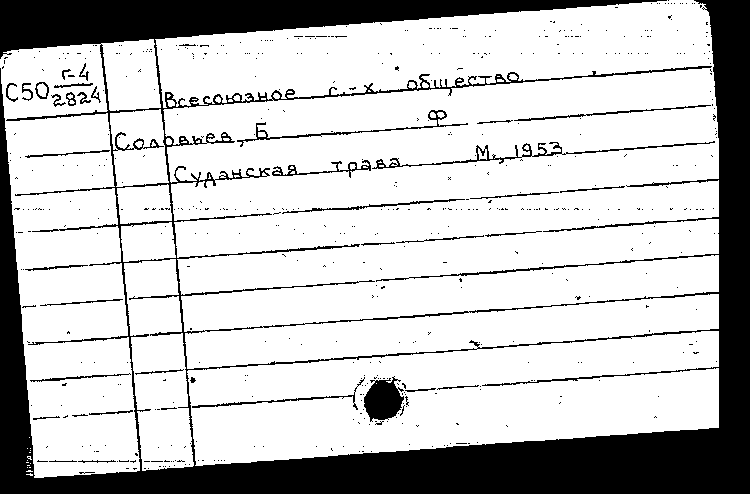 С50 г-4/2824 Всесоюзное с.-х. общество
Соловьев, Б Ф
Суданская трава. М., 1953